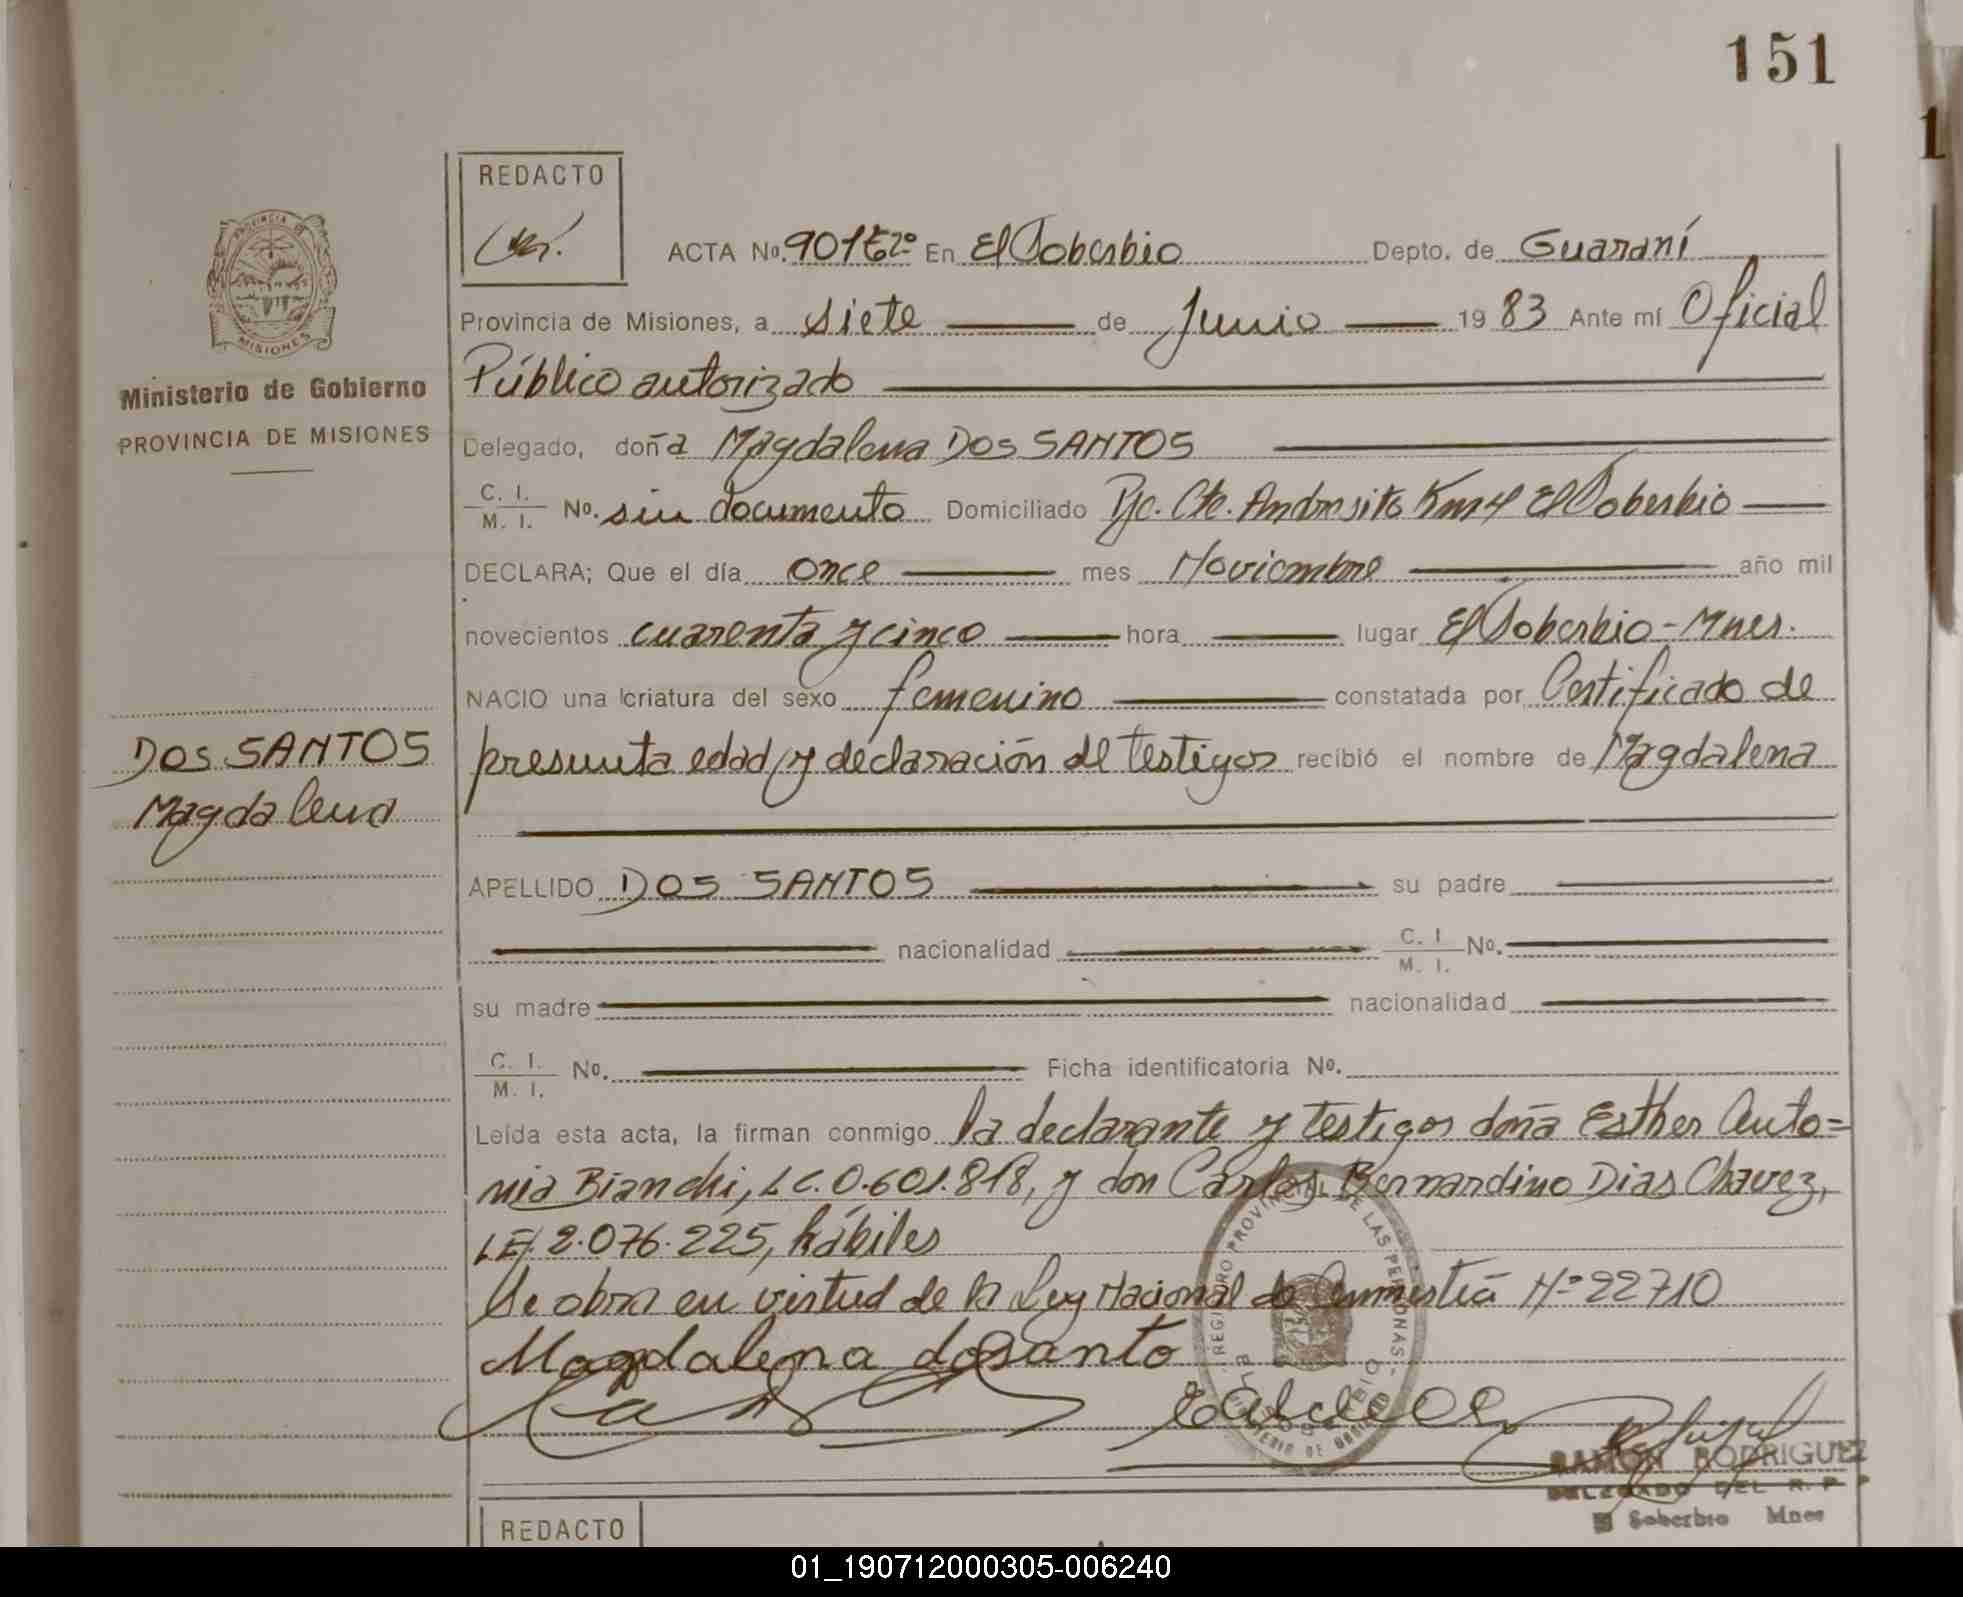 151
REDACTO
ACTA Nº. 901 tº2º En El Soberbio Depto. de Guaraní
Provincia de Misiones, a siete de Junio 19 83 Ante mí Oficial
Público autorizado
Delegado, doña Magdalena DOS SANTOS
C. I.
M. I. Nº. sin documento Domiciliado Pje. Cte. Andresito Km 4 El Soberbio
DECLARA; Que el día once mes Noviembre año mil
novecientos cuarenta y cinco hora lugar El Soberbio - Mnes.
NACIO una criatura del sexo femenino constatada por Certificado de
presunta edad y declaración de testigos recibió el nombre de Magdalena
APELLIDO DOS SANTOS su padre
nacionalidad C. I.
M. I. Nº.
su madre nacionalidad
C. I.
M. I. Nº. Ficha identificatoria Nº.
Leída esta acta, la firman conmigo la declarante y testigos doña Esther Anto=
nia Bianchi, LC. 0.601.818, y don Carlos Bernardino Dias Chavez,
LE. 2.076.225, hábiles
Se obra en virtud de la Ley Nacional de Amnistía Nº 22710
Magdalena dosanto
PROVINCIA DE
MISIONES
Ministerio de Gobierno
PROVINCIA DE MISIONES
DOS SANTOS
Magdalena
REGISTRO PROVINCIAL DE LAS PERSONAS
MINISTERIO DE GOBIERNO
RAMON RODRIGUEZ
DELEGADO DEL R. P. P
El Soberbio Mnes
REDACTO
01_190712000305-006240